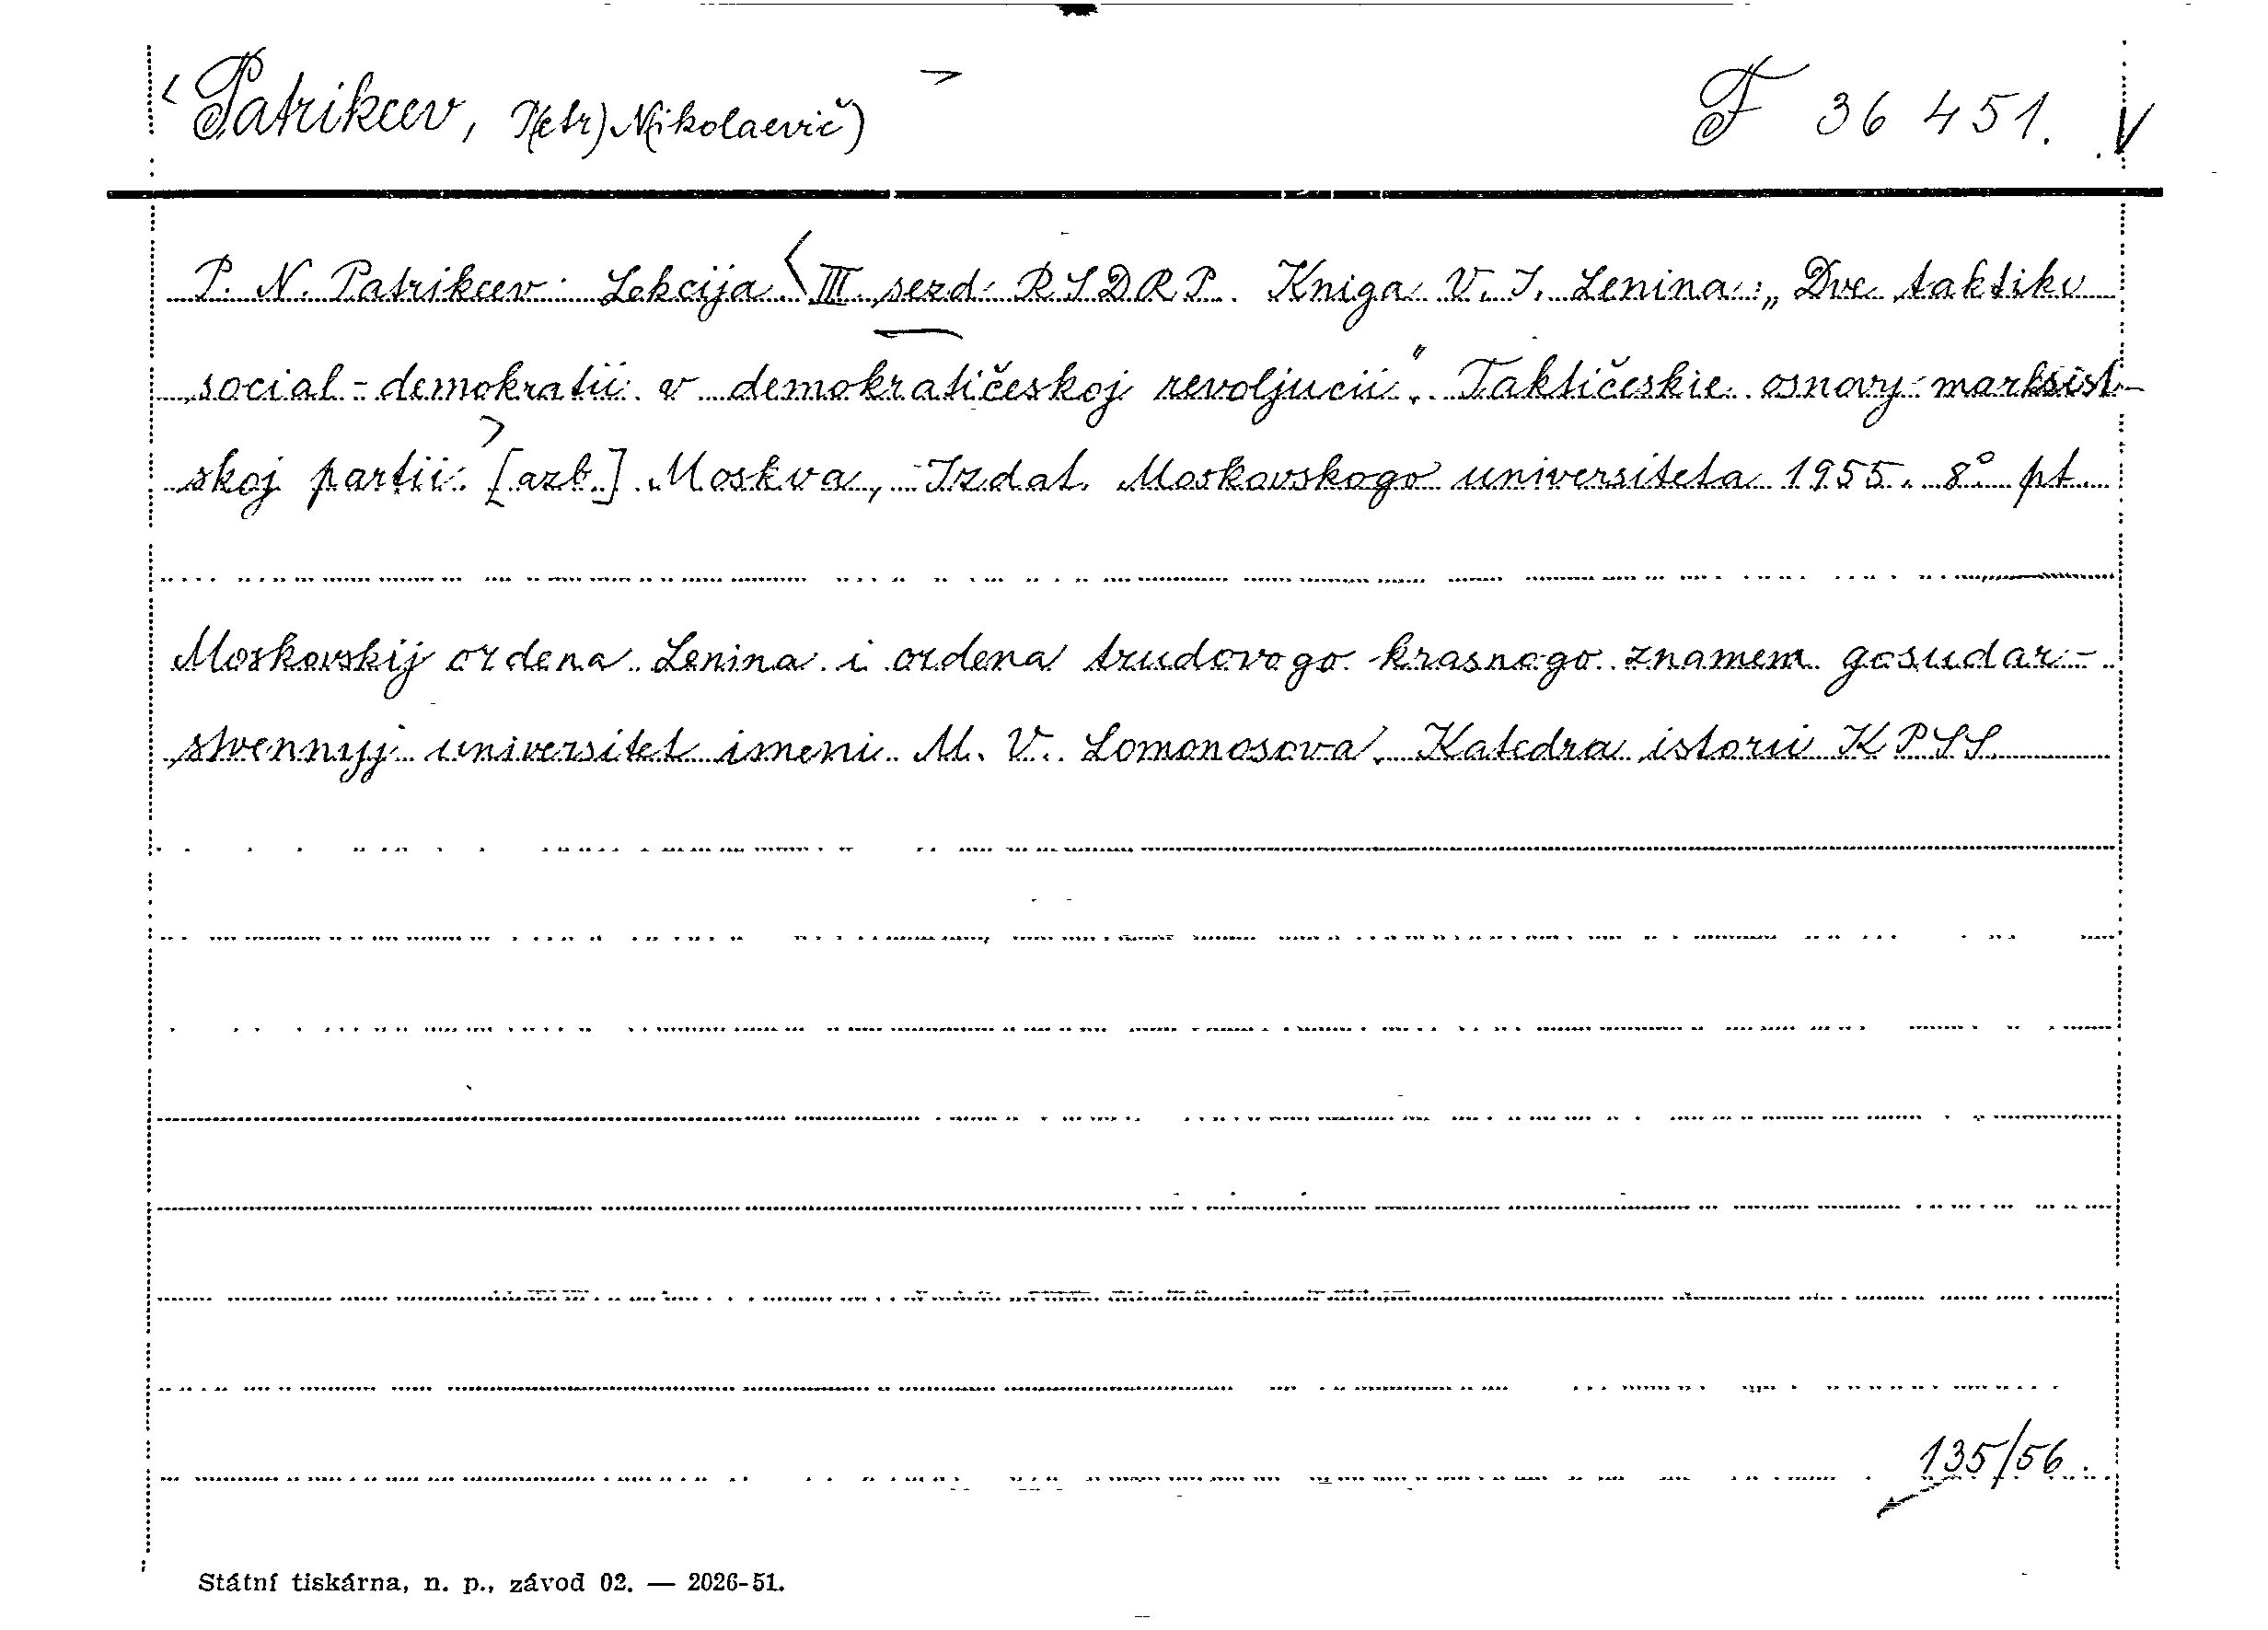 <Patrikeev, P(etr) N(ikolaevič)> F 36 451. V
P. N. Patrikeev: Lekcija. <III sezd RSDRP. Kniga V. I. Lenina: „Dve taktiki
social-demokratii v demokratičeskoj revoljucii". Taktičeskie osnovy marksist-
skoj partii.> [azb.] Moskva, Izdat. Moskovskogo universiteta 1955. 8° pt.
Moskovskij ordena Lenina i ordena trudovogo krasnogo znameni gosudar-
stvennyj universitet imeni M. V. Lomonosova. Katedra istorii KPSS
135/56.
Státní tiskárna, n. p., závod 02. — 2026-51.